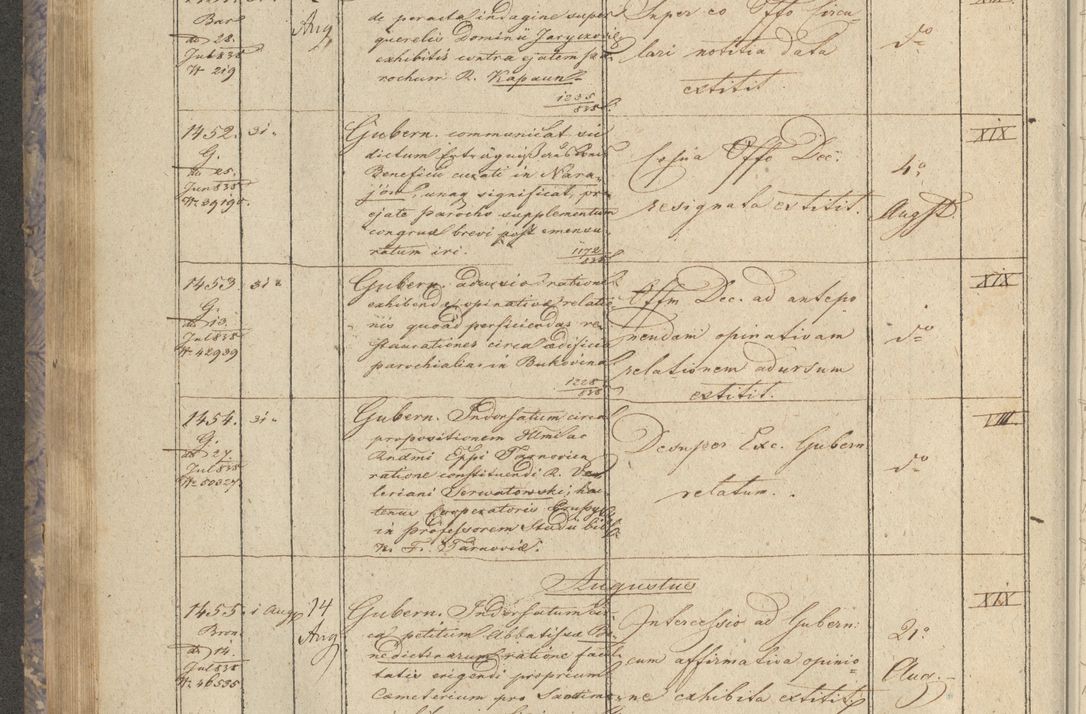 de peracta indagine super
querelis Dominii Jaryczovie
exhibitis contra ejatem pa
rochum R. Kapaun.
1235
838
Super eo Offo Circu
lari notitia data
extitit.
Bar
28.
Jul 838
N 219
Aug
do
1452.
G.
do 25.
Jun 838
N. 39190.
31.
Gubern. communicat
dictum
Beneficii curati in Nara
jow, unaq significat, pr
ejate parocho supplementum
congrua brevi post emensu
ratum iri.
1172
838
Offo Dec.
resignata extitit.
4o
Augst.
XIX
1453
G.
do 13.
Jul 838
N. 42939
31.
Gubern. ratione
exhibenda opinativa relatio
nis quoad perficiendas re
staurationes circa aedificia
parochialia in Bukovina
1228
838
Offm Dec. ad antepo
nendam opinativam
relationem adursum
extitit.
do
XIX
1454.
G.
do 27.
Jul 838
N. 50327.
31.
Gubern. Indorsatum circa
propositionem Illmi ac
Rndmi Eppi Tarnovien
ratione constituendi R. Va
leriani Serwatowski, hac
tenus Cooperatoris
in professorem Studii bibl.
N. F. Tarnoviae.
Desuper Exc. Gubern
relatum.
do
VIII
Augustus
1455.
Bron.
do 14.
Jul 838
N. 46535
1 Aug
14
Aug
Gubern. Indorsatum cir
ca petitum Abbatissae Be
nedictinarum ratione facul
tatis erigendi proprium
Cameterium pro Sanctimo
Intercessio ad Gubern:
cum affirmativa opinio
ne exhibita extitit.
21o
Aug.
XIX